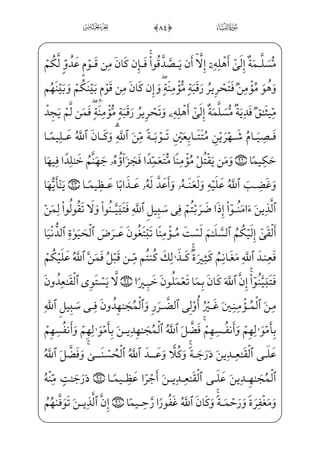 سُورَةُ النِّسَاءِ ﴿٨٤﴾ الجُزْءُ الخَامِسُ
مُّسَلَّمَةٌ إِلَىٰٓ أَهْلِهِۦٓ إِلَّآ أَن يَصَّدَّقُوا۟ ۚ فَإِن كَانَ مِن قَوْمٍ عَدُوٍّ لَّكُمْ
وَهُوَ مُؤْمِنٌ فَتَحْرِيرُ رَقَبَةٍ مُّؤْمِنَةٍ ۖ وَإِن كَانَ مِن قَوْمٍۭ بَيْنَكُمْ وَبَيْنَهُم
مِّيثَٰقٌ فَدِيَةٌ مُّسَلَّمَةٌ إِلَىٰٓ أَهْلِهِۦ وَتَحْرِيرُ رَقَبَةٍ مُّؤْمِنَةٍ ۖ فَمَن لَّمْ يَجِدْ
فَصِيَامُ شَهْرَيْنِ مُتَتَابِعَيْنِ تَوْبَةً مِّنَ ٱللَّهِ ۗ وَكَانَ ٱللَّهُ عَلِيمًا
حَكِيمًا ﴿٩٢﴾ وَمَن يَقْتُلْ مُؤْمِنًا مُّتَعَمِّدًا فَجَزَآؤُهُۥ جَهَنَّمُ خَٰلِدًا فِيهَا
وَغَضِبَ ٱللَّهُ عَلَيْهِ وَلَعَنَهُۥ وَأَعَدَّ لَهُۥ عَذَابًا عَظِيمًا ﴿٩٣﴾ يَٰٓأَيُّهَا
ٱلَّذِينَ ءَامَنُوٓا۟ إِذَا ضَرَبْتُمْ فِى سَبِيلِ ٱللَّهِ فَتَبَيَّنُوا۟ وَلَا تَقُولُوا۟ لِمَنْ
أَلْقَىٰٓ إِلَيْكُمُ ٱلسَّلَٰمَ لَسْتَ مُؤْمِنًا تَبْتَغُونَ عَرَضَ ٱلْحَيَوٰةِ ٱلدُّنْيَا
فَعِندَ ٱللَّهِ مَغَانِمُ كَثِيرَةٌ ۚ كَذَٰلِكَ كُنتُم مِّن قَبْلُ فَمَنَّ ٱللَّهُ عَلَيْكُمْ
فَتَبَيَّنُوٓا۟ ۚ إِنَّ ٱللَّهَ كَانَ بِمَا تَعْمَلُونَ خَبِيرًا ﴿٩٤﴾ لَّا يَسْتَوِى ٱلْقَٰعِدُونَ
مِنَ ٱلْمُؤْمِنِينَ غَيْرُ أُو۟لِى ٱلضَّرَرِ وَٱلْمُجَٰهِدُونَ فِى سَبِيلِ ٱللَّهِ
بِأَمْوَٰلِهِمْ وَأَنفُسِهِمْ ۚ فَضَّلَ ٱللَّهُ ٱلْمُجَٰهِدِينَ بِأَمْوَٰلِهِمْ وَأَنفُسِهِمْ
عَلَى ٱلْقَٰعِدِينَ دَرَجَةً ۚ وَكُلًّا وَعَدَ ٱللَّهُ ٱلْحُسْنَىٰ ۚ وَفَضَّلَ ٱللَّهُ
ٱلْمُجَٰهِدِينَ عَلَى ٱلْقَٰعِدِينَ أَجْرًا عَظِيمًا ﴿٩٥﴾ دَرَجَٰتٍ مِّنْهُ
وَمَغْفِرَةً وَرَحْمَةً ۚ وَكَانَ ٱللَّهُ غَفُورًا رَّحِيمًا ﴿٩٦﴾ إِنَّ ٱلَّذِينَ تَوَفَّىٰهُمُ